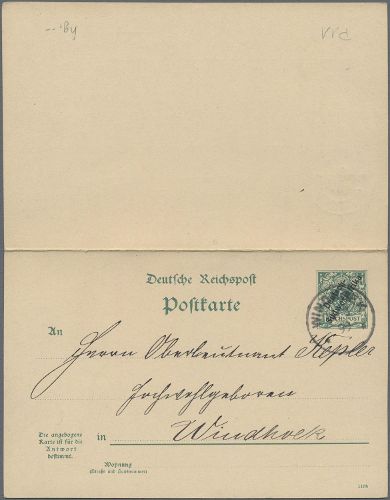 Deutsche Reichspost
Postkarte
An
Herrn Oberleutnant
Hochwohlgeboren
Die angebogene
Karte ist für die
Antwort
bestimmt.
in Windhoek
Wohnung
(Straße und Hausnummer)